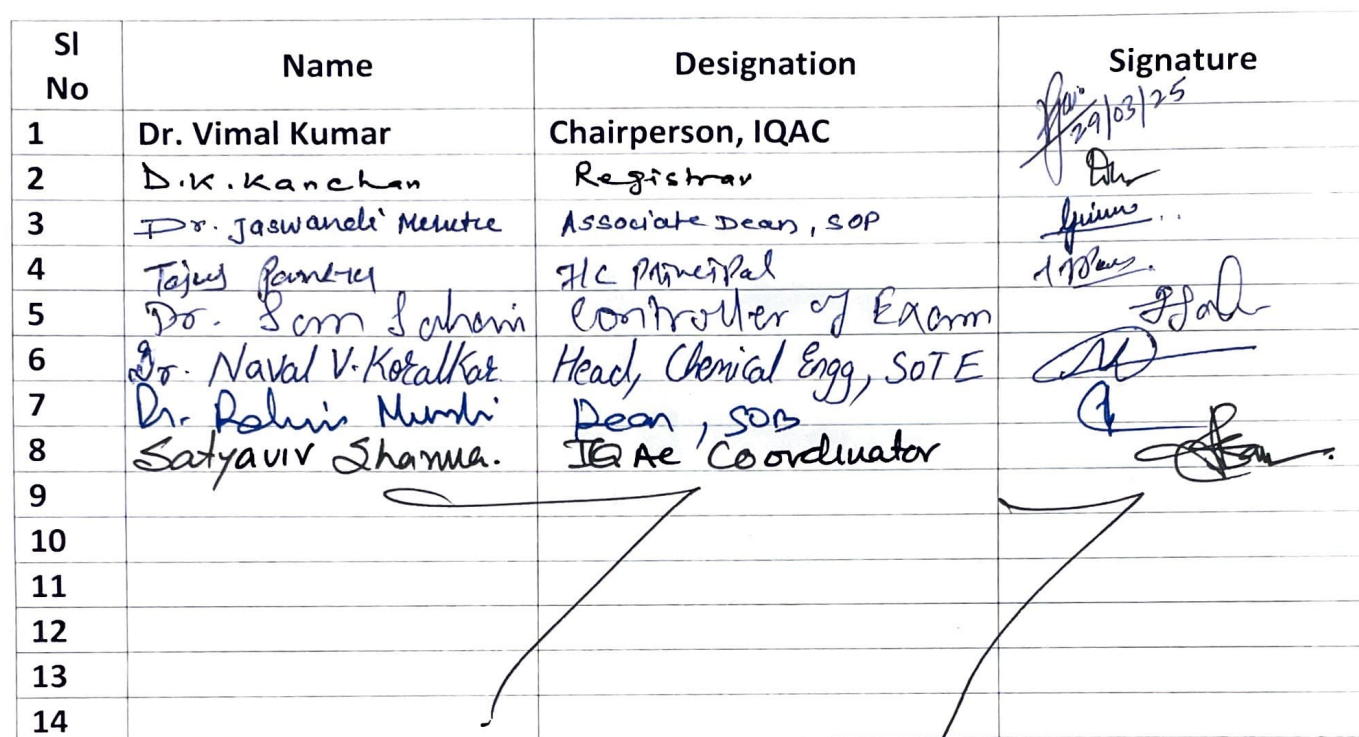 Sl No Name Designation Signature
1 Dr. Vimal Kumar Chairperson, IQAC 29/03/25
2 D.K. Kanchan Registrar
3 Dr. Associate Dean, SOP
4 I/C Principal
5 Dr. Controller of Exam
6 Dr. Naval V. Koralkar Head, Chemical Engg, SOTE
7 Dr. Dean, SOB
8 Satyavir Sharma. IQAC Coordinator
9
10
11
12
13
14